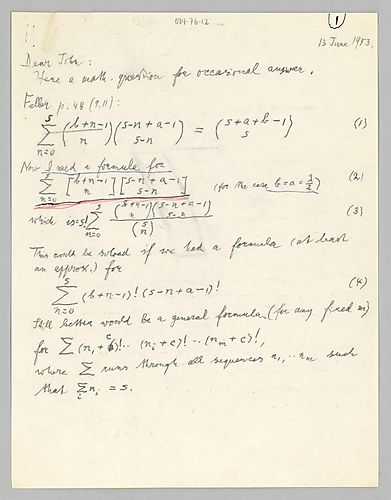 084-76-12
1
13 June 1983.
Dear John:
Here a math. question for occasional answer.
Feller p. 48 (9,11):
∑_{n=0}^{s} (b+n−1 \ n) (s−n+a−1 \ s−n) = (s+a+b−1 \ s) (1)
Now I need a formula for
∑_{n=0}^{s} [b+n−1 \ n] [s−n+a−1 \ s−n] (for the case b=a=λ/2) (2)
which is = s! ∑_{n=0}^{s} (b+n−1 \ n)(s−n+a−1 \ s−n) / (s \ n) (3)
This could be solved if we had a formula (at least
an approx.) for
∑_{n=0}^{s} (b+n−1)! (s−n+a−1)! (4)
Still better would be a general formula (for any fixed m)
for ∑ (n₁+c)!·· (nᵢ+c)!··(n_m+c)!,
where ∑ runs through all sequences n₁,··n_m such
that ∑ᵢ nᵢ = s.